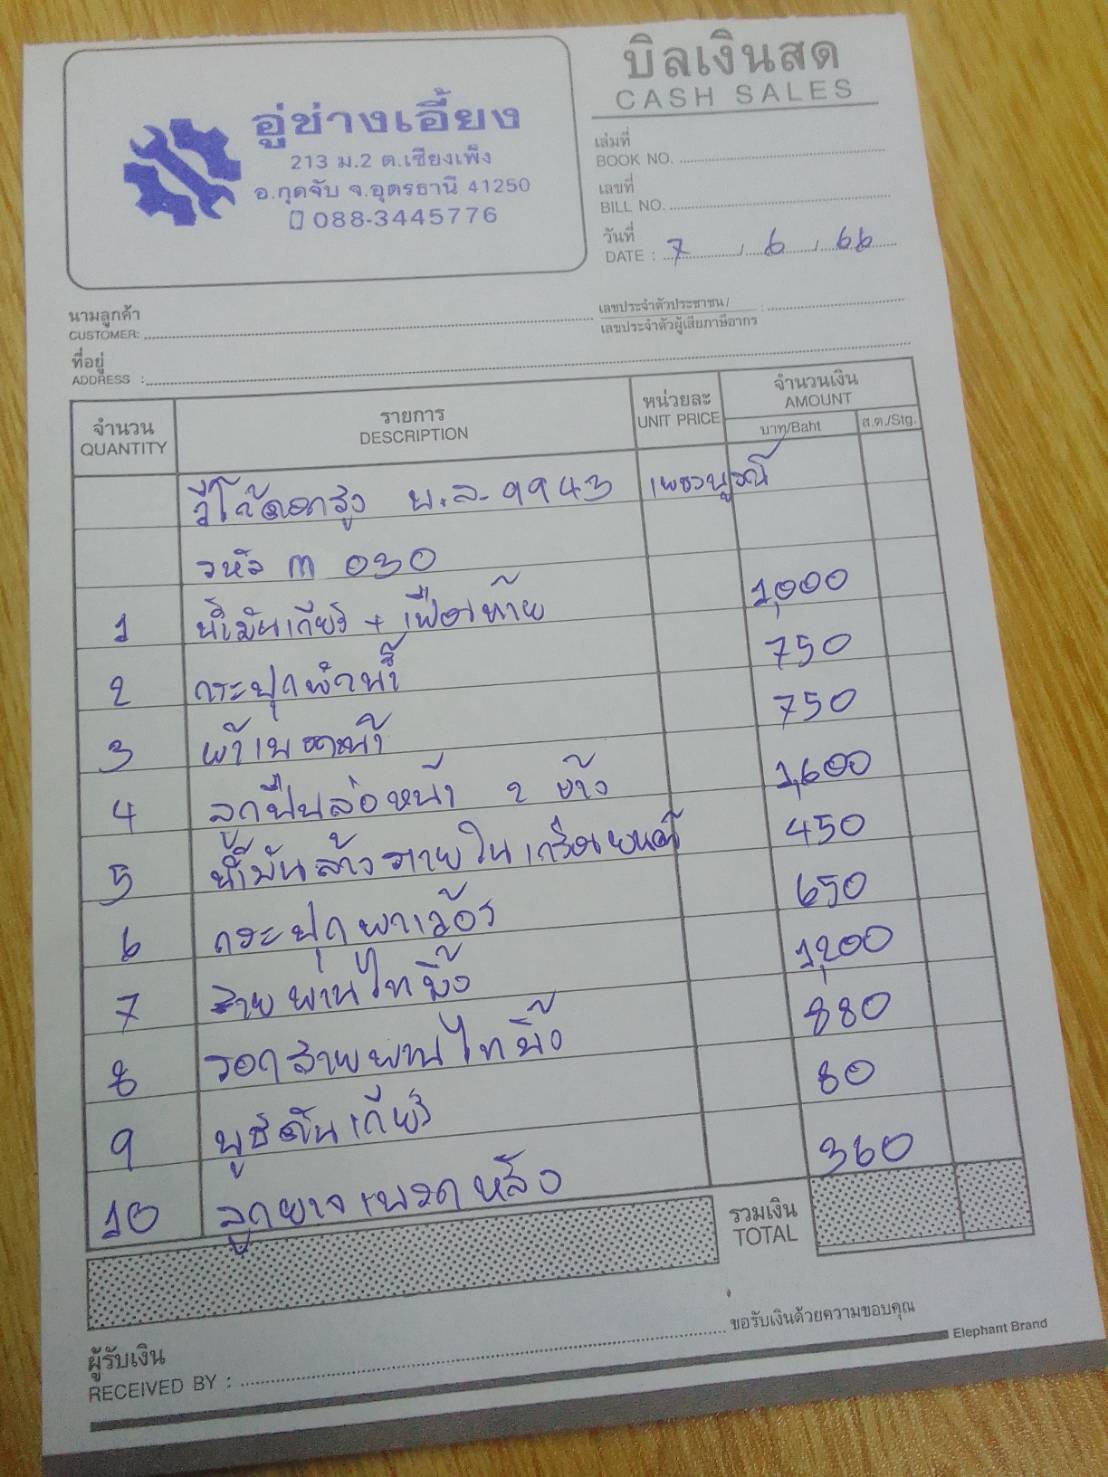 บิลเงินสด
CASH SALES
อู่ช่างเอี้ยง
213 ม.2 ต.เชียงเพ็ง
อ.กุดจับ จ.อุดรธานี 41250
088-3445776
เล่มที่
BOOK NO.
เลขที่
BILL NO.
วันที่
DATE : 7 / 6 / 66
นามลูกค้า
CUSTOMER:
เลขประจำตัวประชาชน/ :
เลขประจำตัวผู้เสียภาษีอากร
ที่อยู่
ADDRESS :
จำนวน รายการ หน่วยละ จำนวนเงิน
QUANTITY DESCRIPTION UNIT PRICE AMOUNT
บาท/Baht ส.ต./Stg.
วีโก้ตอกสูง 9943 เพชรบูรณ์
รหัส m 030
1 น้ำมันเกียร์ + เฟืองท้าย 1,000
2 กระปุกพักน้ำ 750
3 ผ้าเบรคหน้า 750
4 ลูกปืนล้อหน้า 2 ข้าง 1,600
5 น้ำมันล้างภายในเครื่องยนต์ 450
6 กระปุกพาเวอร์ 650
7 สายพานไทมิ้ง 1,200
8 รอกสายพานไทมิ้ง 880
9 บูชคันเกียร์ 80
10 ลูกยางเบรคหลัง 360
รวมเงิน
TOTAL
ขอรับเงินด้วยความขอบคุณ
ผู้รับเงิน
RECEIVED BY :
Elephant Brand